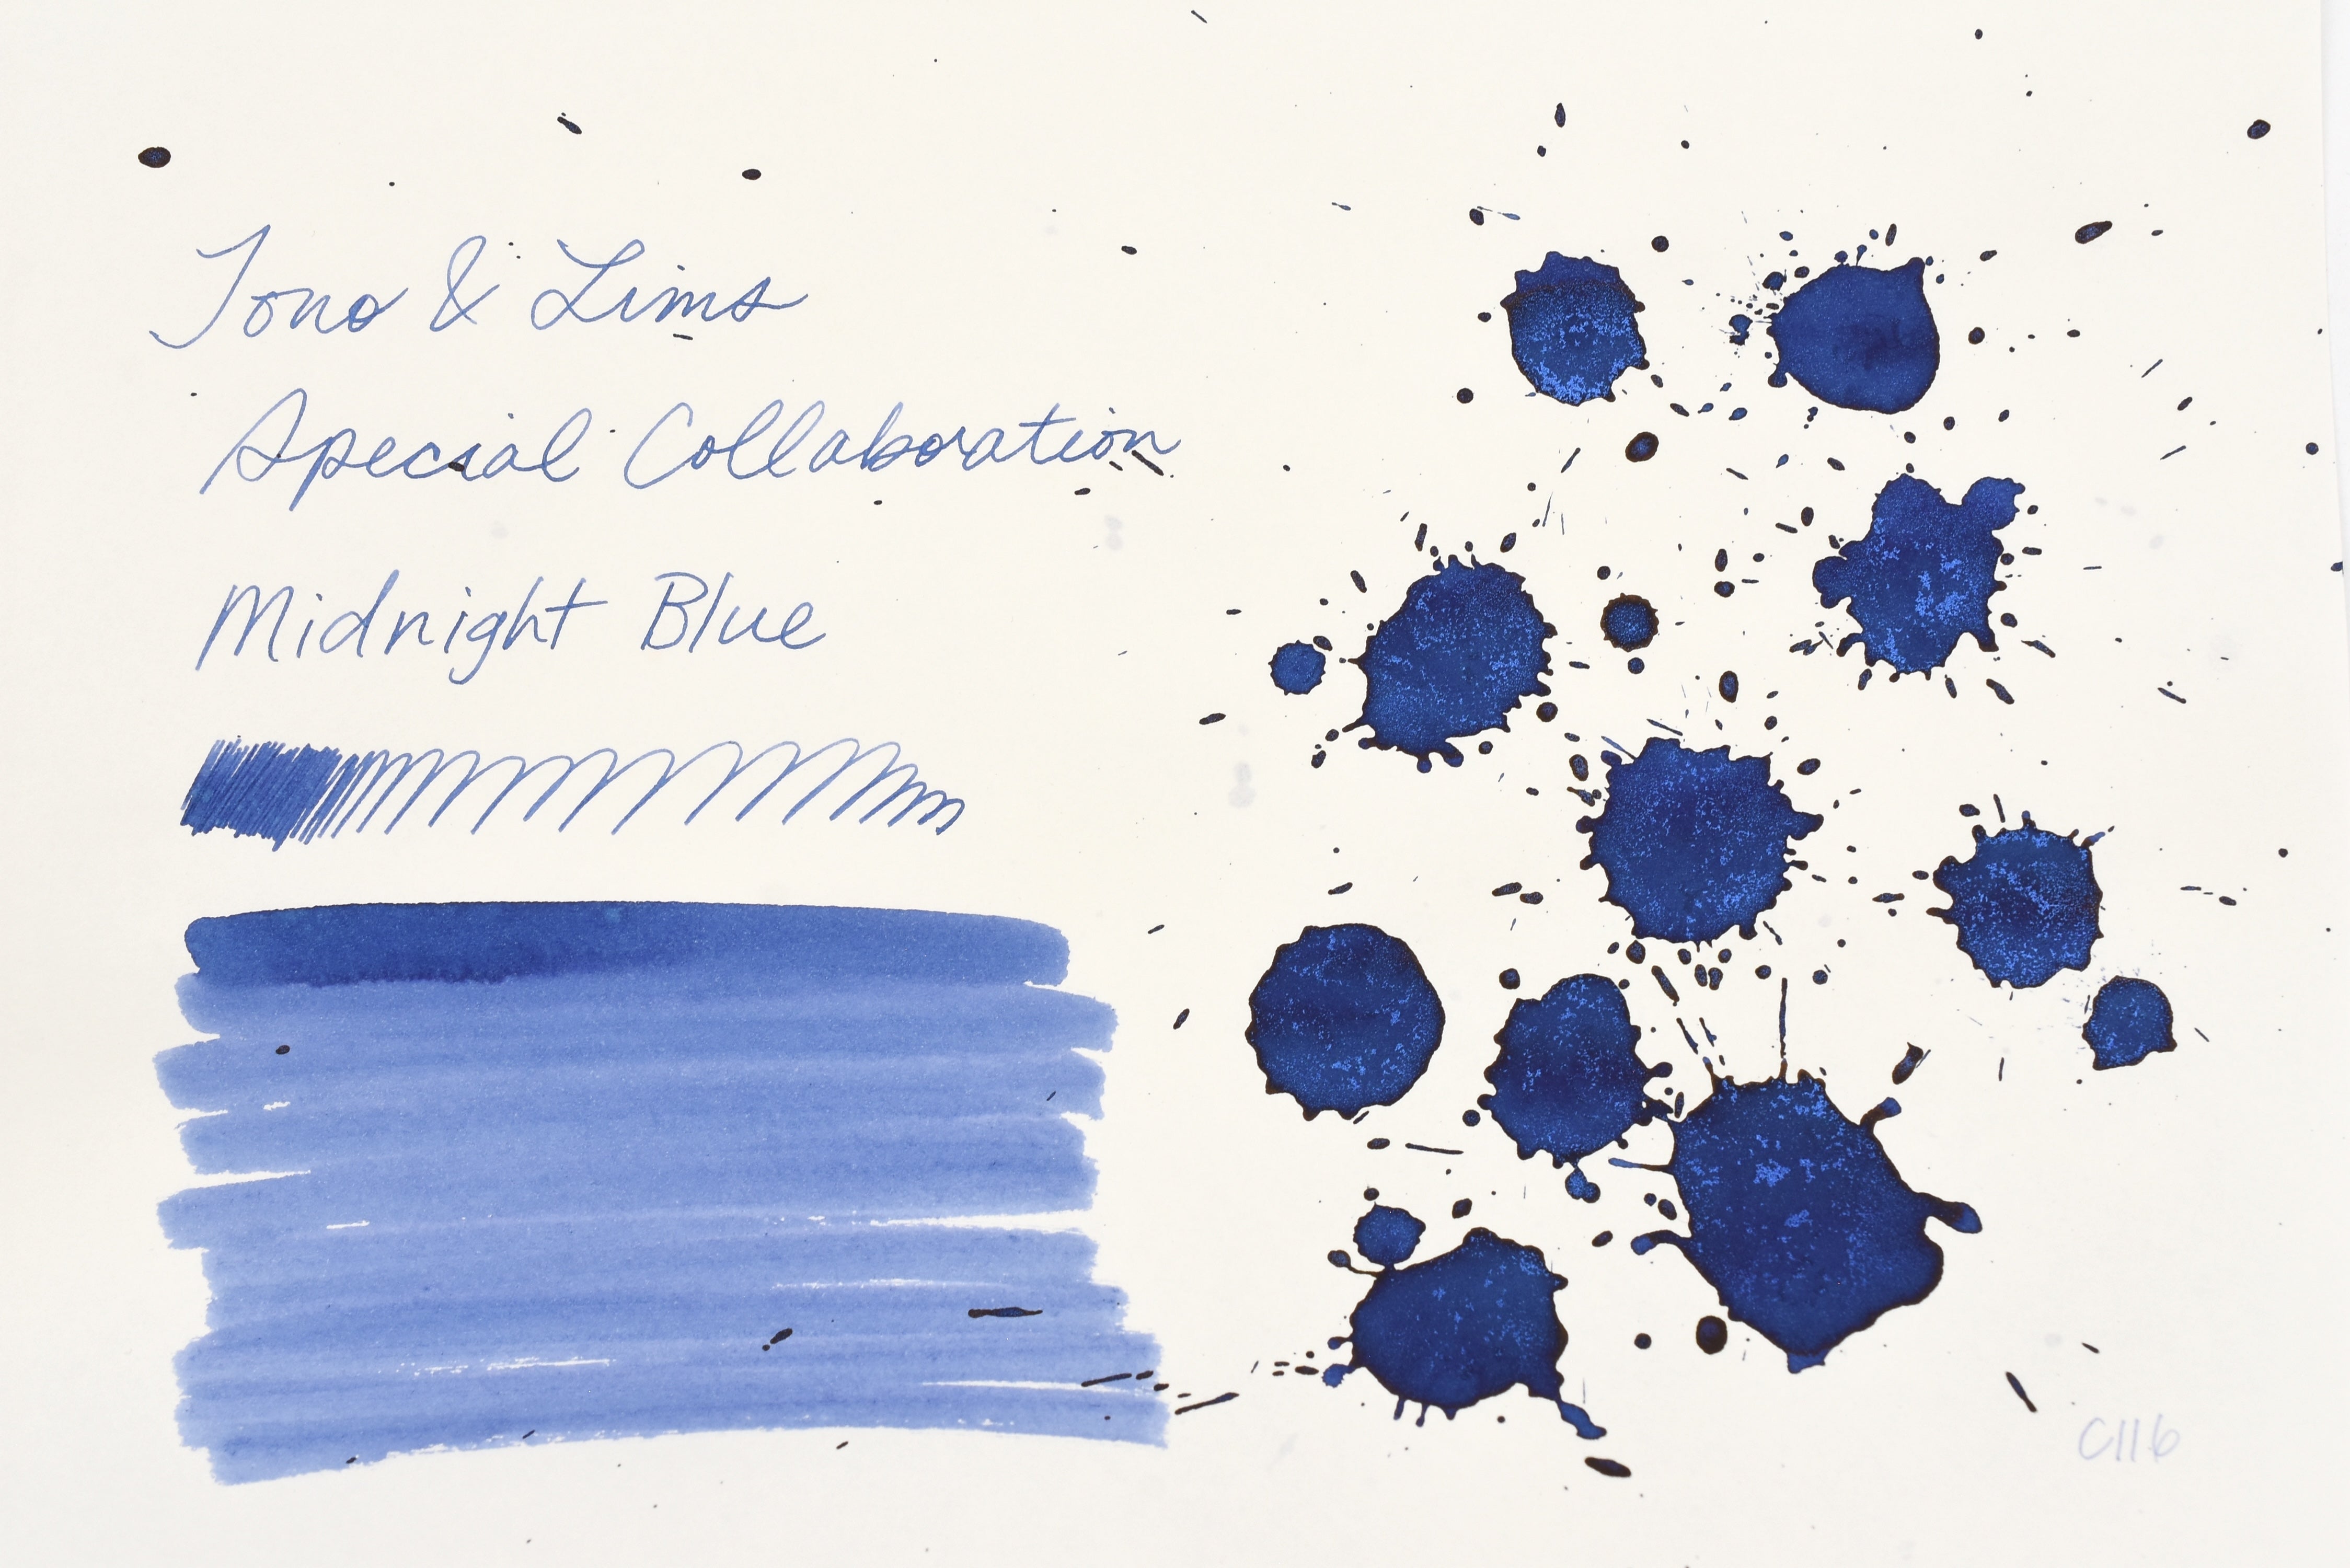 Tono & Lims
Special Collaboration
Midnight Blue
C116